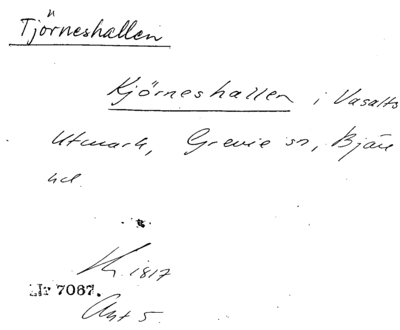 Tjörneshallen
Kjörneshallen i Vasalts
Utmark, Grevie sn, Bjäre
hd.
1817
Nr 7067.
Akt 5.